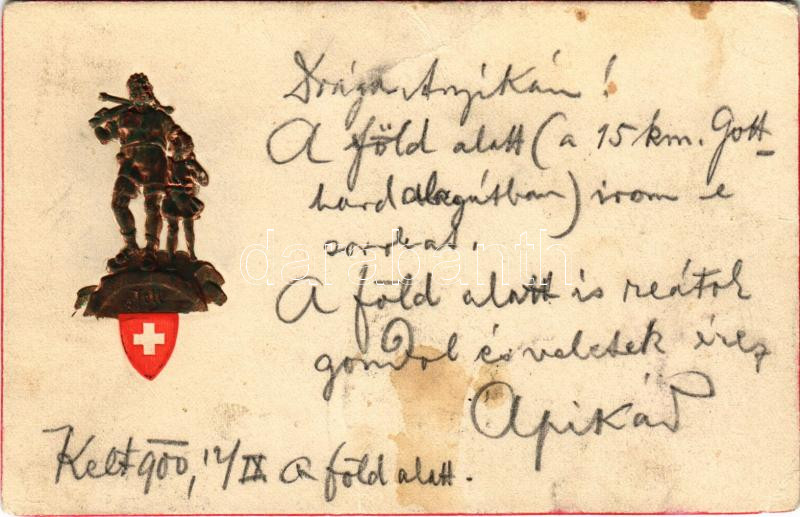 Drága Anyikám!
A föld alatt (a 15 km. Gott-
hard alagútban) irom e
sorokat.
A föld alatt is reátok
gondol és veletek érez
Apikád
Kelt 900, 12/IX A föld alatt.
Tell
darabanth